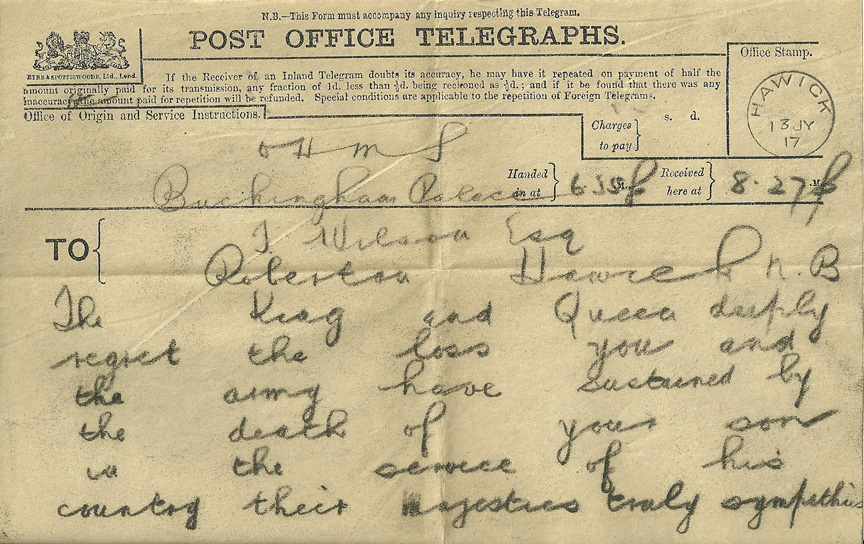 N.B.—This Form must accompany any inquiry respecting this Telegram.
POST OFFICE TELEGRAPHS.
EYRE & SPOTTISWOODE, Ltd., Lond.
If the Receiver of an Inland Telegram doubts its accuracy, he may have it repeated on payment of half the
amount originally paid for its transmission, any fraction of 1d. less than ½d. being reckoned as ½d.; and if it be found that there was any
inaccuracy, the amount paid for repetition will be refunded. Special conditions are applicable to the repetition of Foreign Telegrams.
Office of Origin and Service Instructions.
Office Stamp.
HAWICK
13 JY
17
Charges
to pay
s. d.
O H M S
Buckingham Palace
Handed
in at
Received
here at
8.27 p
TO
J Wilson Esq
Roberton Hawick N.B
The King and Queen deeply
regret the loss you and
the army have sustained by
the death of your son
in the service of his
country their majesties truly sympathise